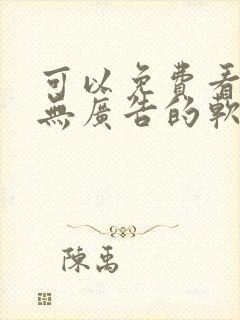 可以免費看
無廣告的軟
陳禹